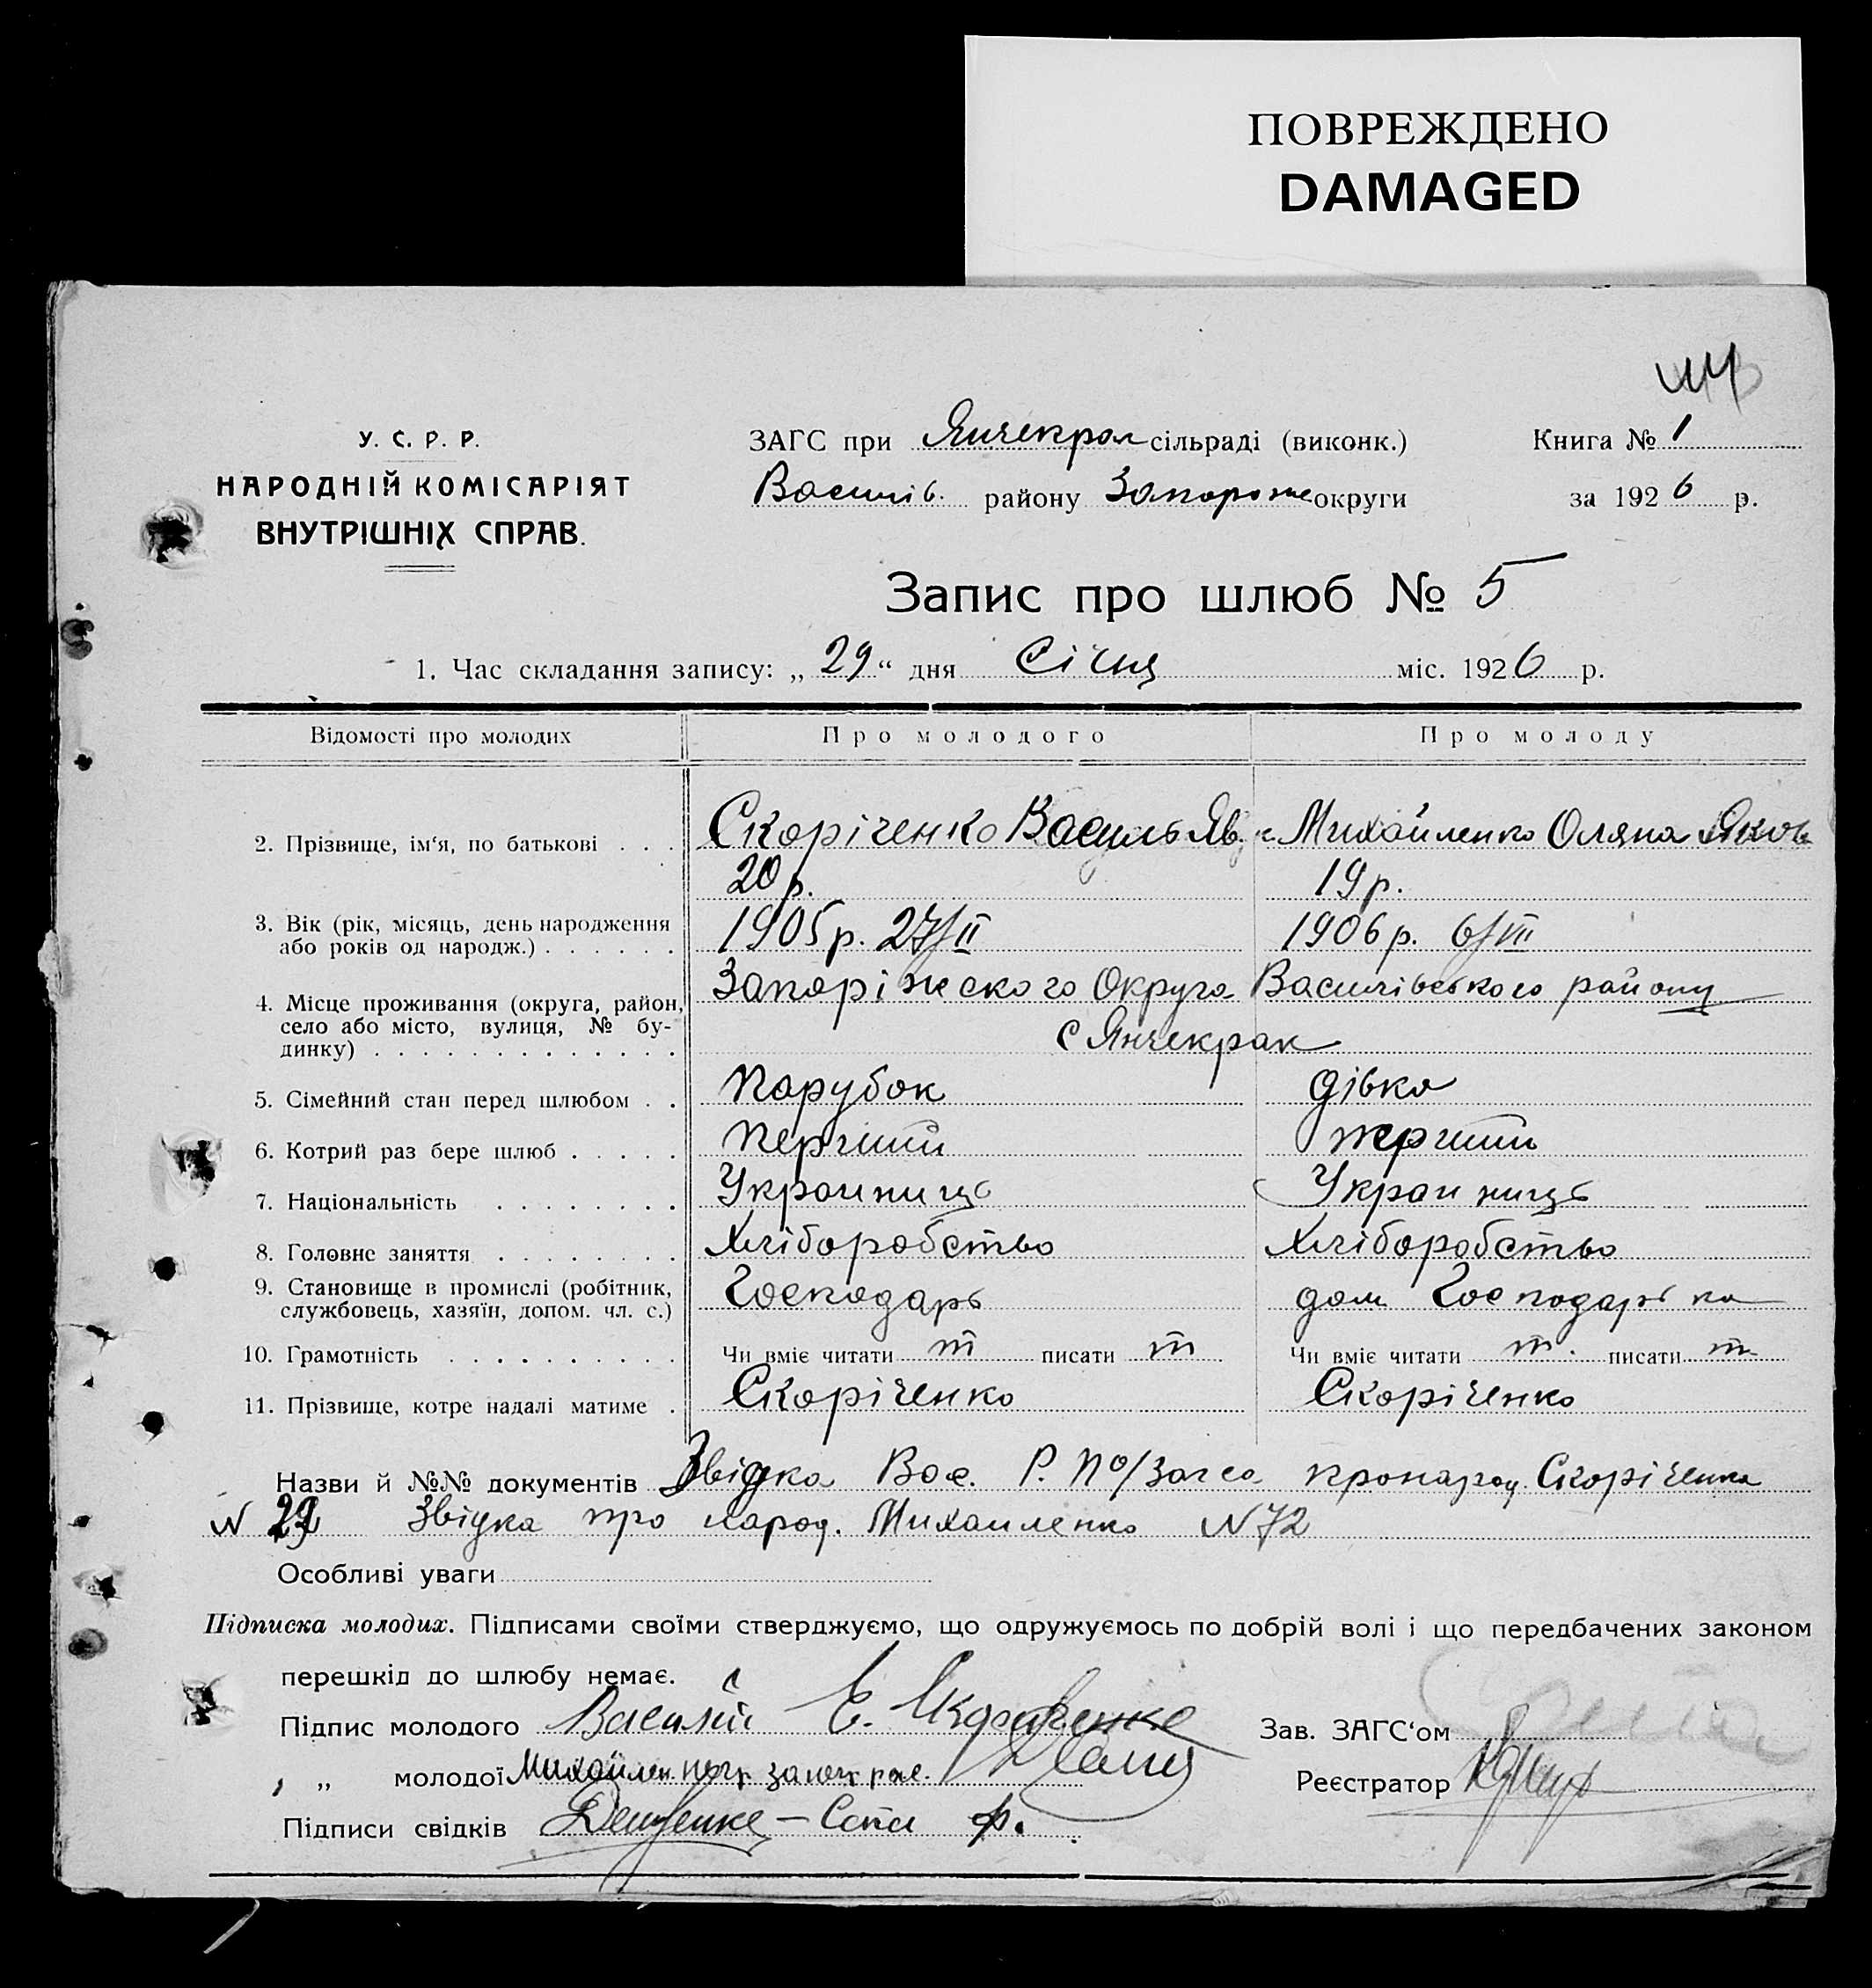 ПОВРЕЖДЕНО
DAMAGED
У. С. Р. Р.
НАРОДНІЙ КОМІСАРІЯТ
ВНУТРІШНІХ СПРАВ.
ЗАГС при Янчекрак сільраді (виконк.)
Василів. району Запорожс округи
Книга № 1
за 1926 р.
Запис про шлюб № 5
1. Час складання запису: „ 29 “ дня Січня міс. 1926 р.
Відомості про молодих Про молодого Про молоду
2. Прізвище, ім‘я, по батькові . . . Скоріченко Василь Михайленко Оляна Яков
20 р. 19 р.
3. Вік (рік, місяць, день народження
або років од народж.) . . . . . . 1905 р. 27/II 1906 р. 6/VII
4. Місце проживання (округа, район, Запоріжского Округа Василівського району
село або місто, вулиця, № бу-
динку) . . . . . . . . . . . . . с Янчекрак
5. Сімейний стан перед шлюбом . . Парубок дівка
6. Котрий раз бере шлюб . . . . . перший перший
7. Національність . . . . . . . . Украиниць Украиниць
8. Головне заняття . . . . . . . . Хліборобство Хліборобство
9. Становище в промислі (робітник,
службовець, хазяїн, допом. чл. с.) Господарь дом Господарька
10. Грамотність . . . . . . . . . . Чи вміє читати т писати т Чи вміє читати т. писати т
11. Прізвище, котре надалі матиме . Скоріченко Скоріченко
Назви й №№ документів Звідка Вас. Р. по/загса про народ. Скоріченка
N 22 Звідка про народ. Михаиленко N 72
Особливі уваги
Підписка молодих. Підписами своїми стверджуємо, що одружуємось по добрій волі і що передбачених законом
перешкід до шлюбу немає.
Підпис молодого Василий Е. Скориченко
Зав. ЗАГС‘ом
„ „ молодої Михайлен
Реєстратор
Підписи свідків